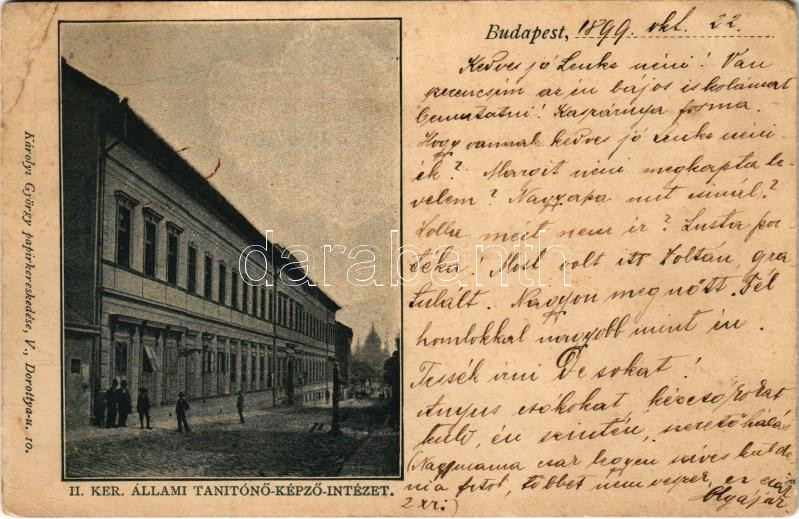 Budapest, 1899. okt. 22.
Kedves jó Lenke néni! Van
szerencsém az én bájos iskolámat
bemutatni! Kaszárnya forma.
Hogy vannak kedves jó Lenke néni-
ék? Margit néni megkapta le-
velem? Nagyapa mit csinál?
mért nem ir? Lusta por-
téka! Most volt itt Zoltán, gra-
tulált. Nagyon megnőtt. Fél
homlokkal nagyobb mint én.
Tessék irni De sokat!
Anyus csókokat, kézcsókokat
küld, én szintén, szerető hálás
(Nagymama csak legyen szives külde-
ni a
többet nem veszer, ez csak
2 xr.)
Károlyi György papirkereskedése, V., Dorottya-u. 10.
II. KER. ÁLLAMI TANITÓNŐ-KÉPZŐ-INTÉZET.
darabanth